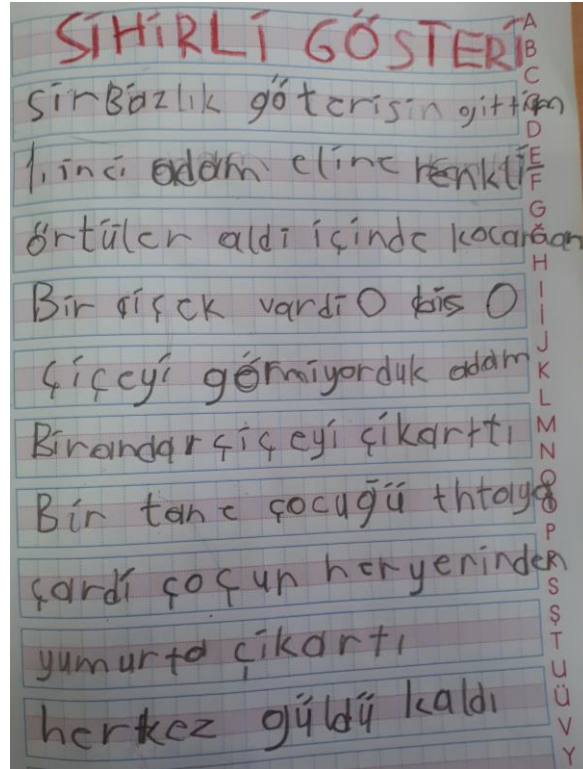 SİHİRLİ GÖSTERİ
sirBazlık göterisin gittim
1.inci adam eline renkli
örtüler aldi içinde kocaman
Bir çiçek vardi O bis O
çiçeyi görmiyorduk adam
Birandar çiçeyi çikartti
Bir tane çocuğü thtaya
çardi çoçun heryerinden
yumurta çikartı
herkez güldü kaldı
A
B
C
Ç
D
E
F
G
Ğ
H
I
İ
J
K
L
M
N
O
Ö
P
R
S
Ş
T
U
Ü
V
Y